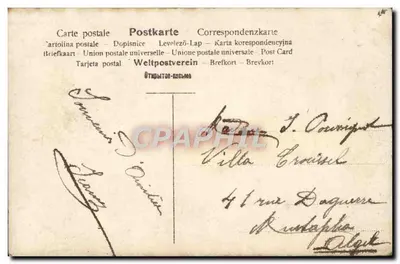 Carte postale Postkarte Correspondenzkarte
Cartolina postale – Dopisnice – Levelező-Lap – Karta korespondencyjna
Briefkaart – Union postale universelle – Unione postale universale – Post Card
Tarjeta postal – Weltpostverein – Brefkort – Brevkort
Открытое-письмо
Souvenir D'
J.
Villa
41 rue Daguerre
Mustapha
Alger
CPAPHIL.COM